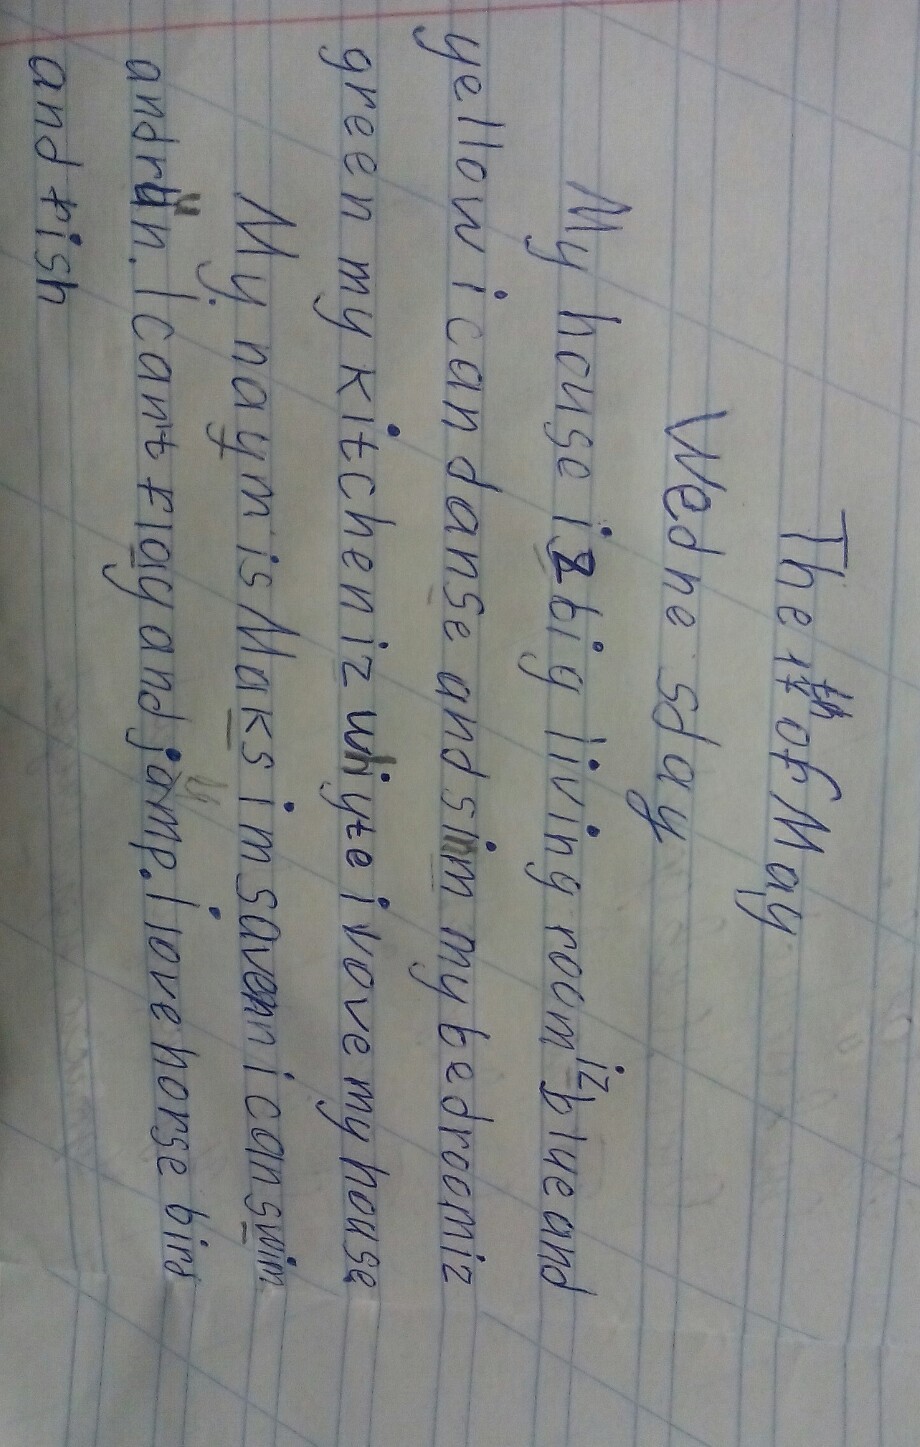 The 1th of May
Wedne sday
My house iz big living room iz blue and
yellow i can danse and sim my bedroom iz
green my kitchen iz whyte i love my house
My naym is Maks im saven i can swim
and run. I cant flay and jamp. I love horse bird
and fish